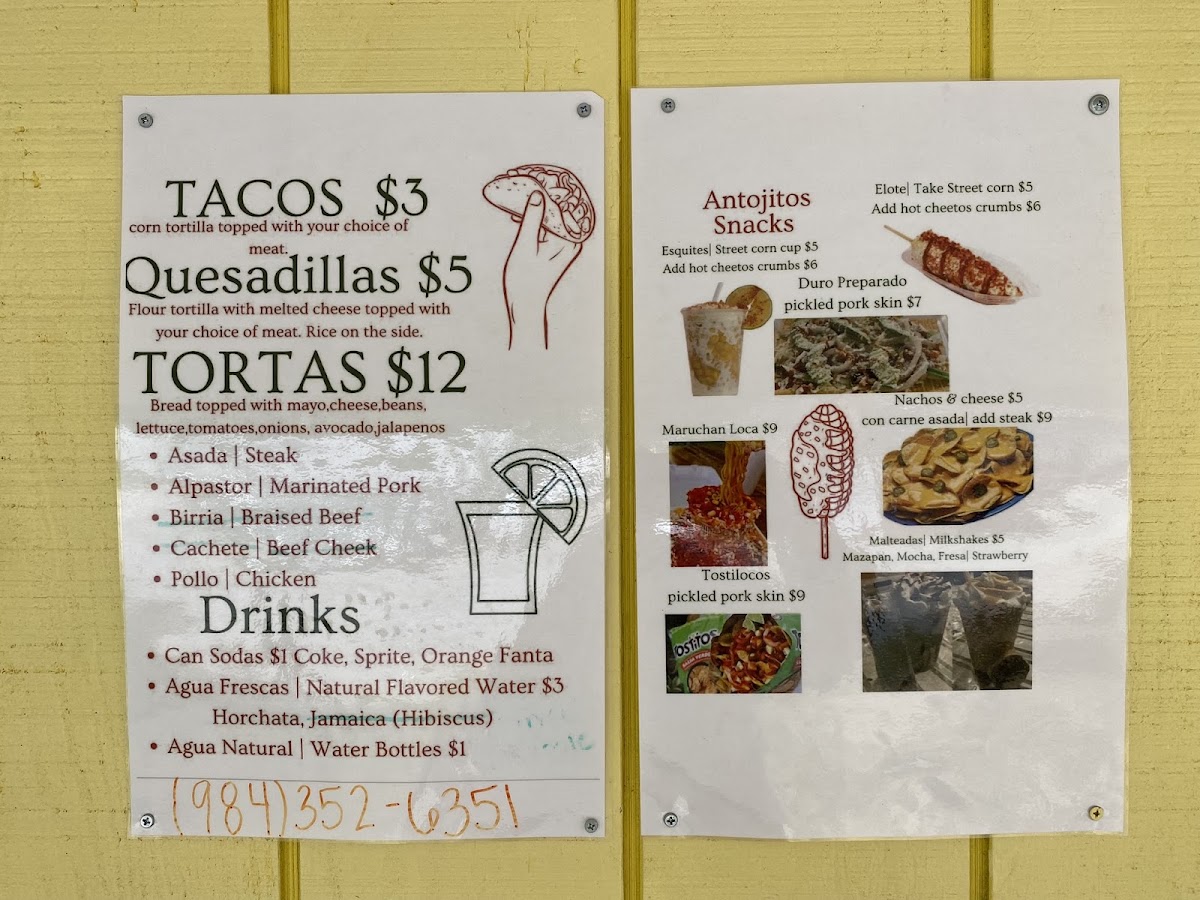 TACOS $3
corn tortilla topped with your choice of
meat.
Quesadillas $5
Flour tortilla with melted cheese topped with
your choice of meat. Rice on the side.
TORTAS $12
Bread topped with mayo,cheese,beans,
lettuce,tomatoes,onions, avocado,jalapenos
• Asada | Steak
• Alpastor | Marinated Pork
• Birria | Braised Beef
• Cachete | Beef Cheek
• Pollo | Chicken
Drinks
• Can Sodas $1 Coke, Sprite, Orange Fanta
• Agua Frescas | Natural Flavored Water $3
Horchata, Jamaica (Hibiscus)
• Agua Natural | Water Bottles $1
(984)352-6351
Antojitos
Snacks
Elote| Take Street corn $5
Add hot cheetos crumbs $6
Esquites| Street corn cup $5
Add hot cheetos crumbs $6
Duro Preparado
pickled pork skin $7
Nachos & cheese $5
con carne asada| add steak $9
Maruchan Loca $9
Malteadas| Milkshakes $5
Mazapan, Mocha, Fresa| Strawberry
Tostilocos
pickled pork skin $9
OSTITOS